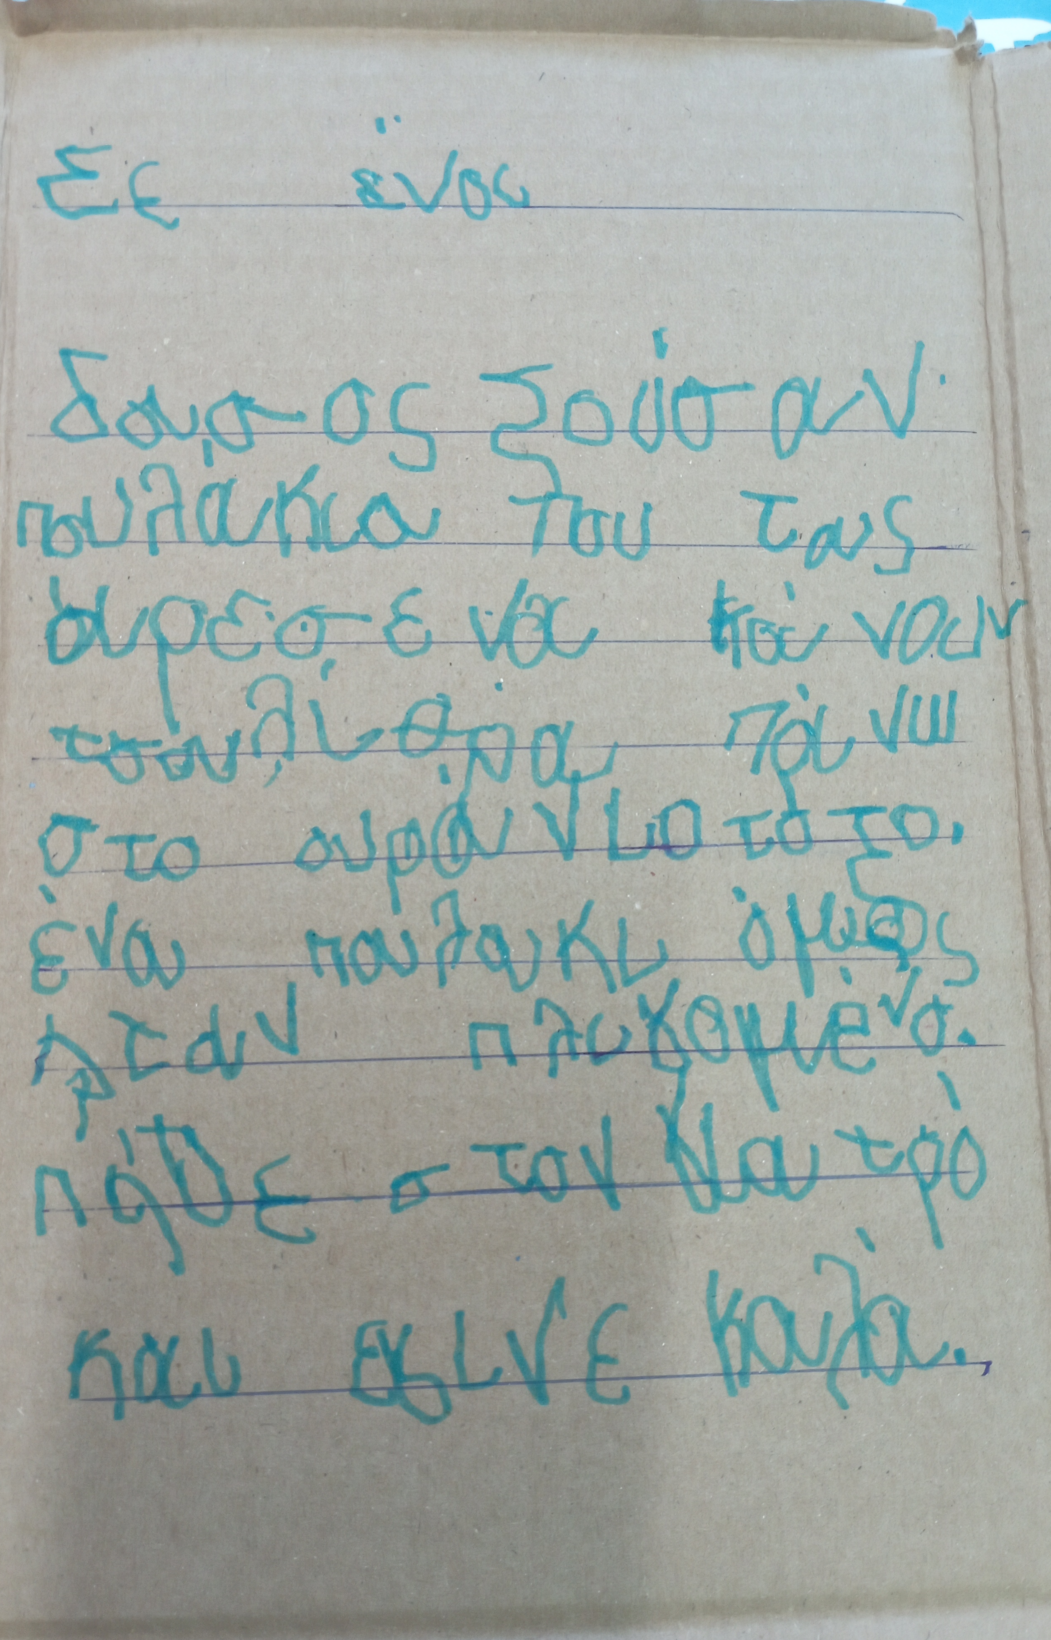 Σε ένος
δασος ζούσαν
πουλάκια που τους
άρεσε να κάνουν
τσουλίθρα πάνω
στο ουράνιο τότο.
ένα πουλακι όμως
ήταν πλιγομένο.
πήγε στον γιατρό
και εγινε καλά.